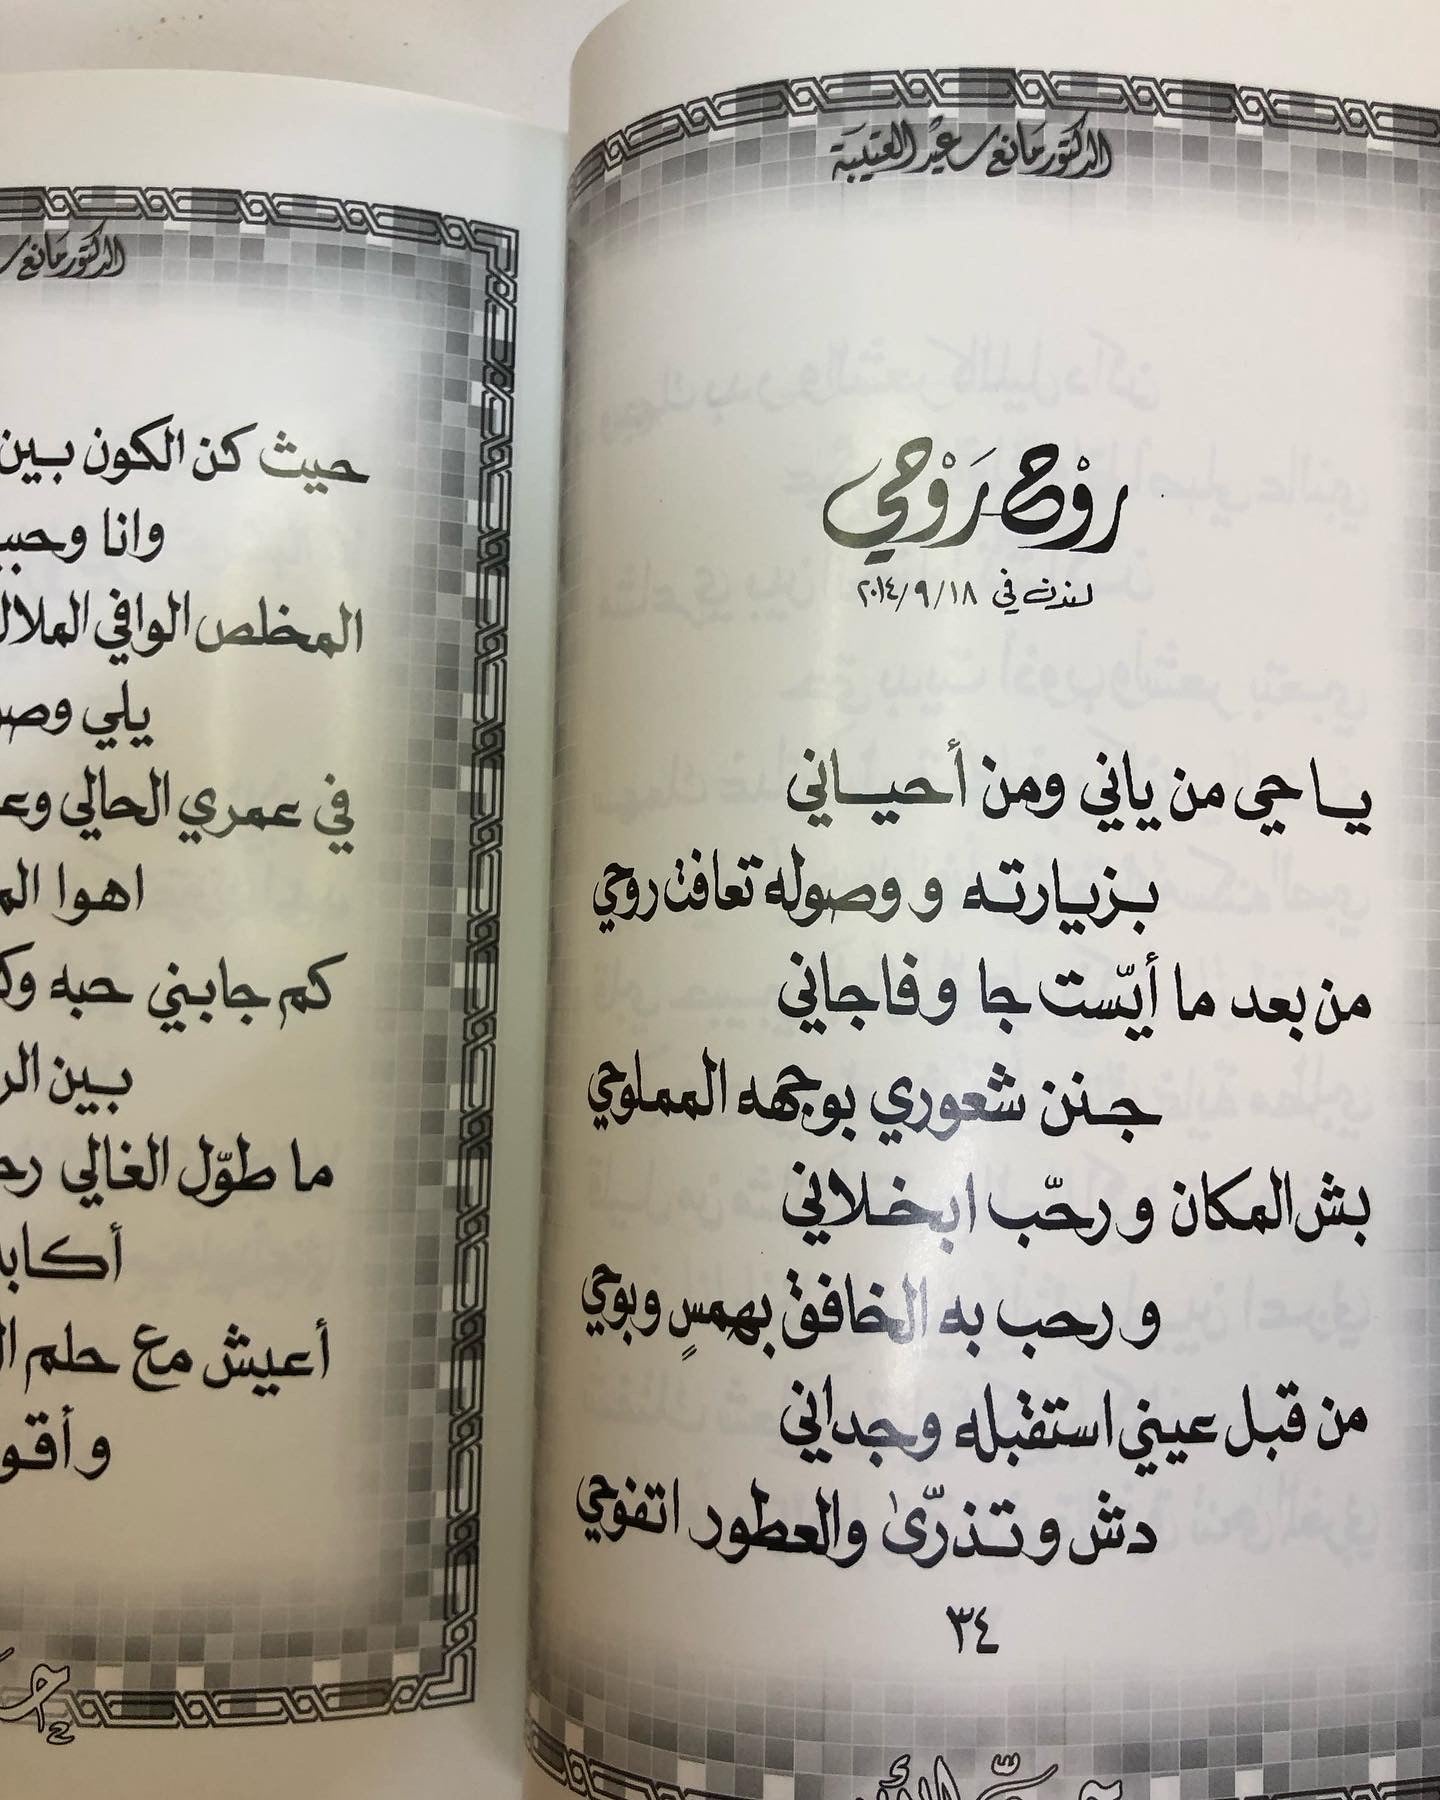 الدكتور مانع سعيد العتيبة
روح روحي
لندن في ١٨/٩/٢٠١٤
يا حي من ياني ومن أحياني
بزيارته و وصوله تعافت روحي
من بعد ما أيّست جا وفاجاني
جنن شعوري بوجهه المملوحي
بش المكان ورحّب ابخلاني
ورحب به الخافق بهمسٍ وبوحي
من قبل عيني استقبله وجداني
دش وتذرّى والعطور اتفوحي
٣٤
الدكتور مانع
حيث كن الكون بين
وانا
المخلص الوافي
يلي
في عمري الحالي
اهوا
كم جابني حبه
بين
ما طوّل الغالي
أعيش مع حلم